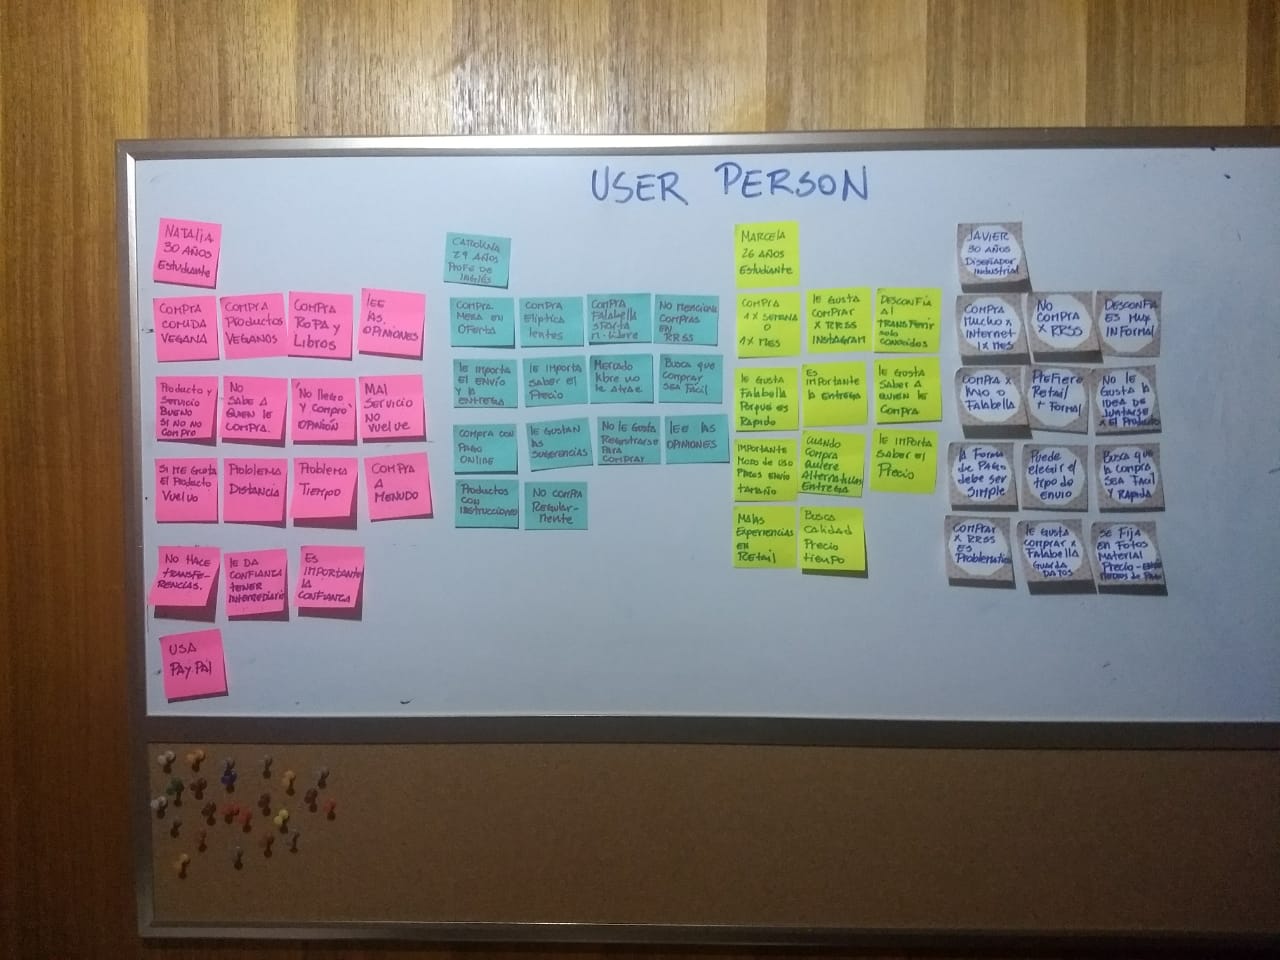 USER PERSON
NATALIA
30 AÑOS
Estudiante
COMPRA
COMIDA
VEGANA
COMPRA
PRODUCTOS
VEGANOS
COMPRA
ROPA Y
Libros
LEE
LAS
OPINIONES
PRODUCTO Y
SERVICIO
BUENO
SI NO NO
COMPRO
NO
SABE A
QUIEN LE
COMPRA.
"No llego
y compro"
OPINIÓN
MAL
SERVICIO
NO
VUELVE
SI ME GUSTA
El PRODUCTO
VUELVO
PROBLEMA
DISTANCIA
PROBLEMA
TIEMPO
COMPRA
A
MENUDO
NO HACE
TRANSFE-
RENCIAS.
LE DA
CONFIANZA
TENER
Intermediario
ES
IMPORTANTE
LA
CONFIANZA
USA
PAYPAL
CAROLINA
29 AÑOS
PROFE DE
INGLÉS
COMPRA
MESA EN
OFERTA
COMPRA
Elíptica
lentes
COMPRA
FALABELLA
M-Libre
NO MENCIONA
COMPRAS
EN
RRSS
le IMPORTA
EL ENVÍO
Y LA
ENTREGA
le IMPORTA
SABER EL
PRECIO
MERCADO
libre no
le ATRAE
BUSCA QUE
COMPRAR
SEA FÁCIL
COMPRA CON
PAGO
ONLINE
le GUSTAN
LAS
SUGERENCIAS
NO le GUSTA
REGISTRARSE
PARA
COMPRAR
LEE LAS
OPINIONES
PRODUCTOS
CON
INSTRUCCIONES
NO COMPRA
REGULAR-
MENTE
MARCELA
26 AÑOS
Estudiante
COMPRA
1 X SEMANA
O
1 X MES
le GUSTA
COMPRAR
X RRSS
INSTAGRAM
DESCONFÍA
Al
TRANSFERIR
solo
CONOCIDOS
le GUSTA
FALABELLA
PORQUE ES
RÁPIDO
ES
IMPORTANTE
la ENTREGA
le GUSTA
SABER A
QUIEN le
COMPRA
IMPORTANTE
MODO DE USO
ENVÍO
TAMAÑO
CUANDO
COMPRA
QUIERE
Alternativas
ENTREGA
le IMPORTA
SABER El
PRECIO
MALAS
EXPERIENCIAS
EN
RETAIL
BUSCA
CALIDAD
PRECIO
tiempo
JAVIER
30 AÑOS
DISEÑADOR
Industrial
COMPRA
MUCHO X
INTERNET
1X MES
NO
COMPRA
X RRSS
DESCONFÍA
ES MUY
INFORMAL
COMPRA X
O
FALABELLA
PREFIERE
Retail
+ FORMAL
NO le
GUSTA la
IDEA DE
JUNTARSE
X El PRODUCTO
la FORMA
DE PAGO
debe SER
SIMPLE
PUEDE
elegir el
tipo de
envío
BUSCA QUE
la COMPRA
SEA FÁCIL
Y RÁPIDA
COMPRAR
X RRSS
ES
PROBLEMÁTICO
le GUSTA
COMPRAR X
FALABELLA
GUARDA
DATOS
SE FIJA
EN FOTOS
MATERIAL
PRECIO - ENVÍO
MEDIOS DE PAGO